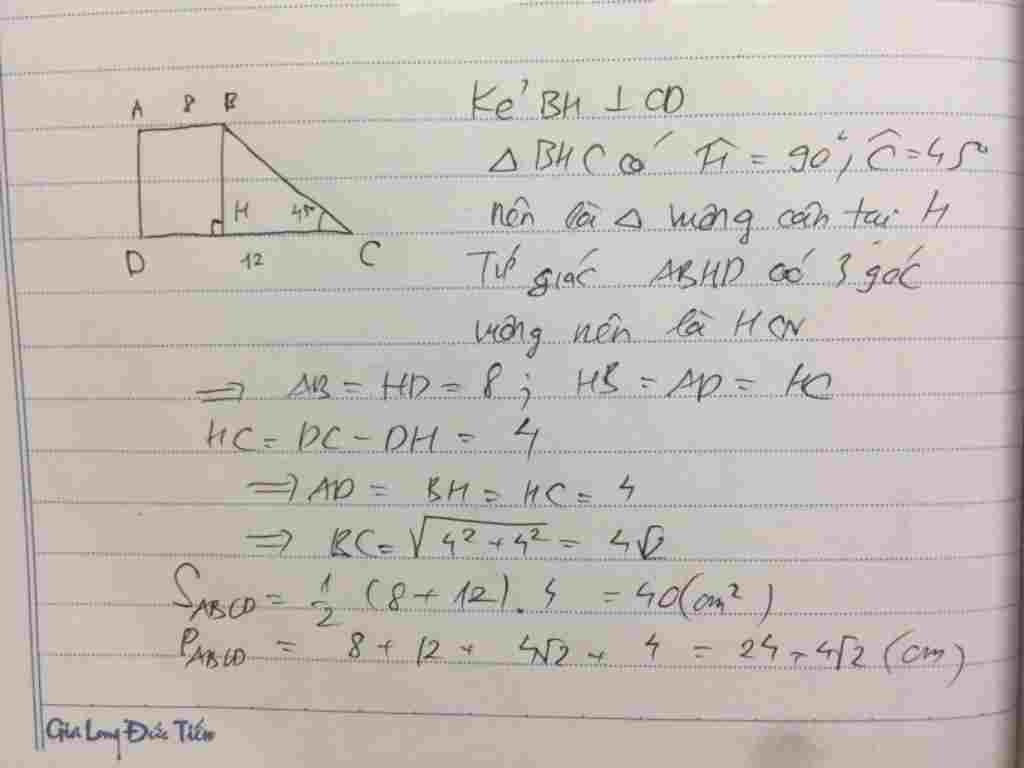 A 8 B
H 45°
D 12 C
Kẻ BH ⊥ CD
Δ BHC có Ĥ = 90°, Ĉ = 45°
nên là Δ vuông cân tại H
Tứ giác ABHD có 3 góc
vuông nên là HCN
⇒ AB = HD = 8 ; HB = AD = HC
HC = DC - DH = 4
⇒ AD = BH = HC = 4
⇒ BC = √(4² + 4²) = 4√2
S_ABCD = 1/2 (8 + 12) . 4 = 40 (cm²)
P_ABCD = 8 + 12 + 4√2 + 4 = 24 + 4√2 (cm)
Gia Long Đức Tiến